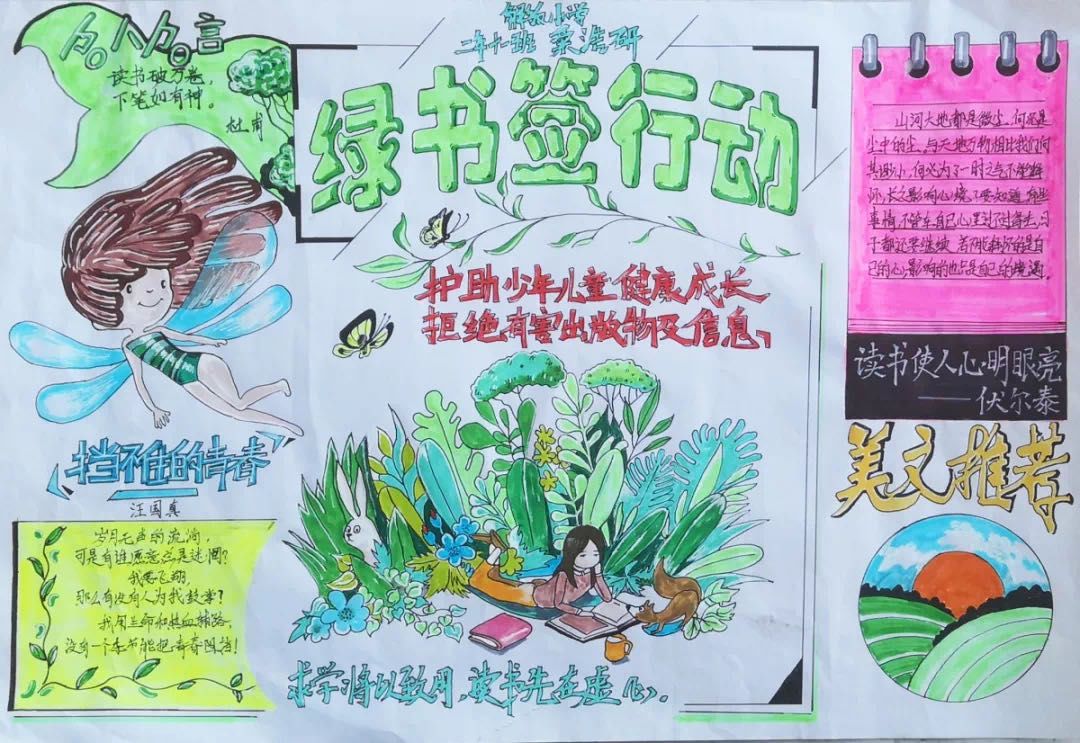 名人名言
读书破万卷，
下笔如有神。
杜甫
解放小学
二年十一班 菜浩研
绿书签行动
护助少年儿童健康成长
拒绝有害出版物及信息
山河大地都是微尘，何况是
尘中的尘，与天地万物相比我们何
其渺小，何必为了一时之气不能释
怀，长久影响心境，要知道，有些
事情，不管在自己心里过不过得去，日
子都还要继续，若不能释怀的是自
己的心，影响的也是自己的境遇。
读书使人心明眼亮
——伏尔泰
挡不住的青春
汪国真
岁月无声的流淌，
可是有谁愿意总是迷惘？
我要飞翔
那么有没有人为我鼓掌？
我用生命和热血铺路，
没有一个季节能把青春阻挡！
美文推荐
求学将以致用，读书先在虚心。